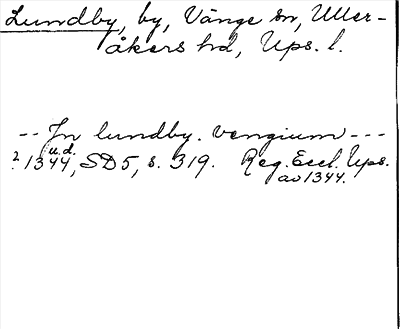 Lundby, by, Vänge sn, Uller-
åkers hd, Ups. l.
-- Jn lundby. vengium ---
u.d.
? 1344, SD5, s. 319. Reg. Eccl. Ups.
av 1344.